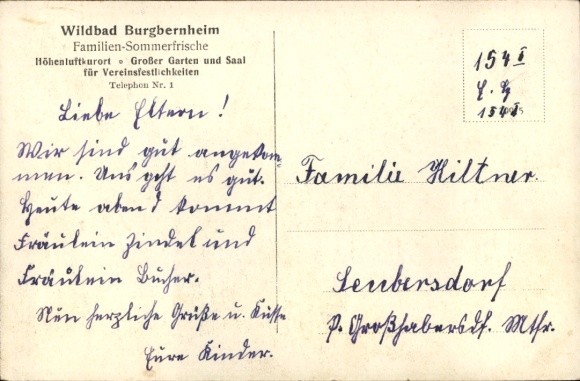 Wildbad Burgbernheim
Familien-Sommerfrische
Höhenluftkurort ∘ Großer Garten und Saal
für Vereinsfestlichkeiten
Telephon Nr. 1
Liebe Eltern!
Wir sind gut angekom-
men. Uns geht es gut.
Heute abend kommt
Fräulein Zindel und
Fräulein Bucher.
Nun herzliche Grüße u. Küsse
Eure Kinder.
154 I
154 I
Familie Hiltner.
Leubersdorf
P. Großhabersdf. Mtfr.